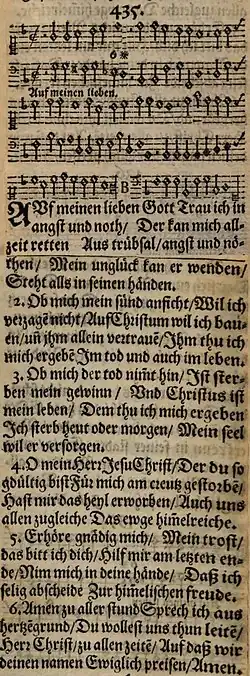 435.
6
Auf meinen lieben.
B
AVf meinen lieben Gott Trau ich in
angst und noth/ Der kan mich all-
zeit retten Aus trübsal/angst und nö-
then/ Mein unglück kan er wenden/
Steht alls in seinen hãnden.
2. Ob mich mein sünd anficht/Wil ich
verzagẽ nicht/AufChristum wil ich bau-
en/uñ ihm allein vertrauẽ/Ihm thu ich
mich ergebẽ Im tod und auch im leben.
3. Ob mich der tod nim̃t hin/ Ist ster-
ben mein gewinn/ Vnd Christus ist
mein leben/ Dem thu ich mich ergeben
Ich sterb heut oder morgen/ Mein seel
wil er versorgen.
4. O mein Herr Jesu Christ/Der du so
gdültig bist Für mich am creutz gestorbẽ/
Hast mir das heyl erworben/ Auch uns
allen zugleiche Das ewge him̃elreiche.
5. Erhöre gnädig mich/ Mein trost/
das bitt ich dich/Hilf mir am letzten en-
de/Nim mich in deine hände/ Daß ich
selig abscheide Zur him̃lischen freude.
6. Amen zu aller stund Sprech ich aus
hertzẽgrund/Du wollest uns thun leitẽ/
Herr Christ/zu allen zeitẽ/ Auf daß wir
deinen namen Ewiglich preisen/Amen.